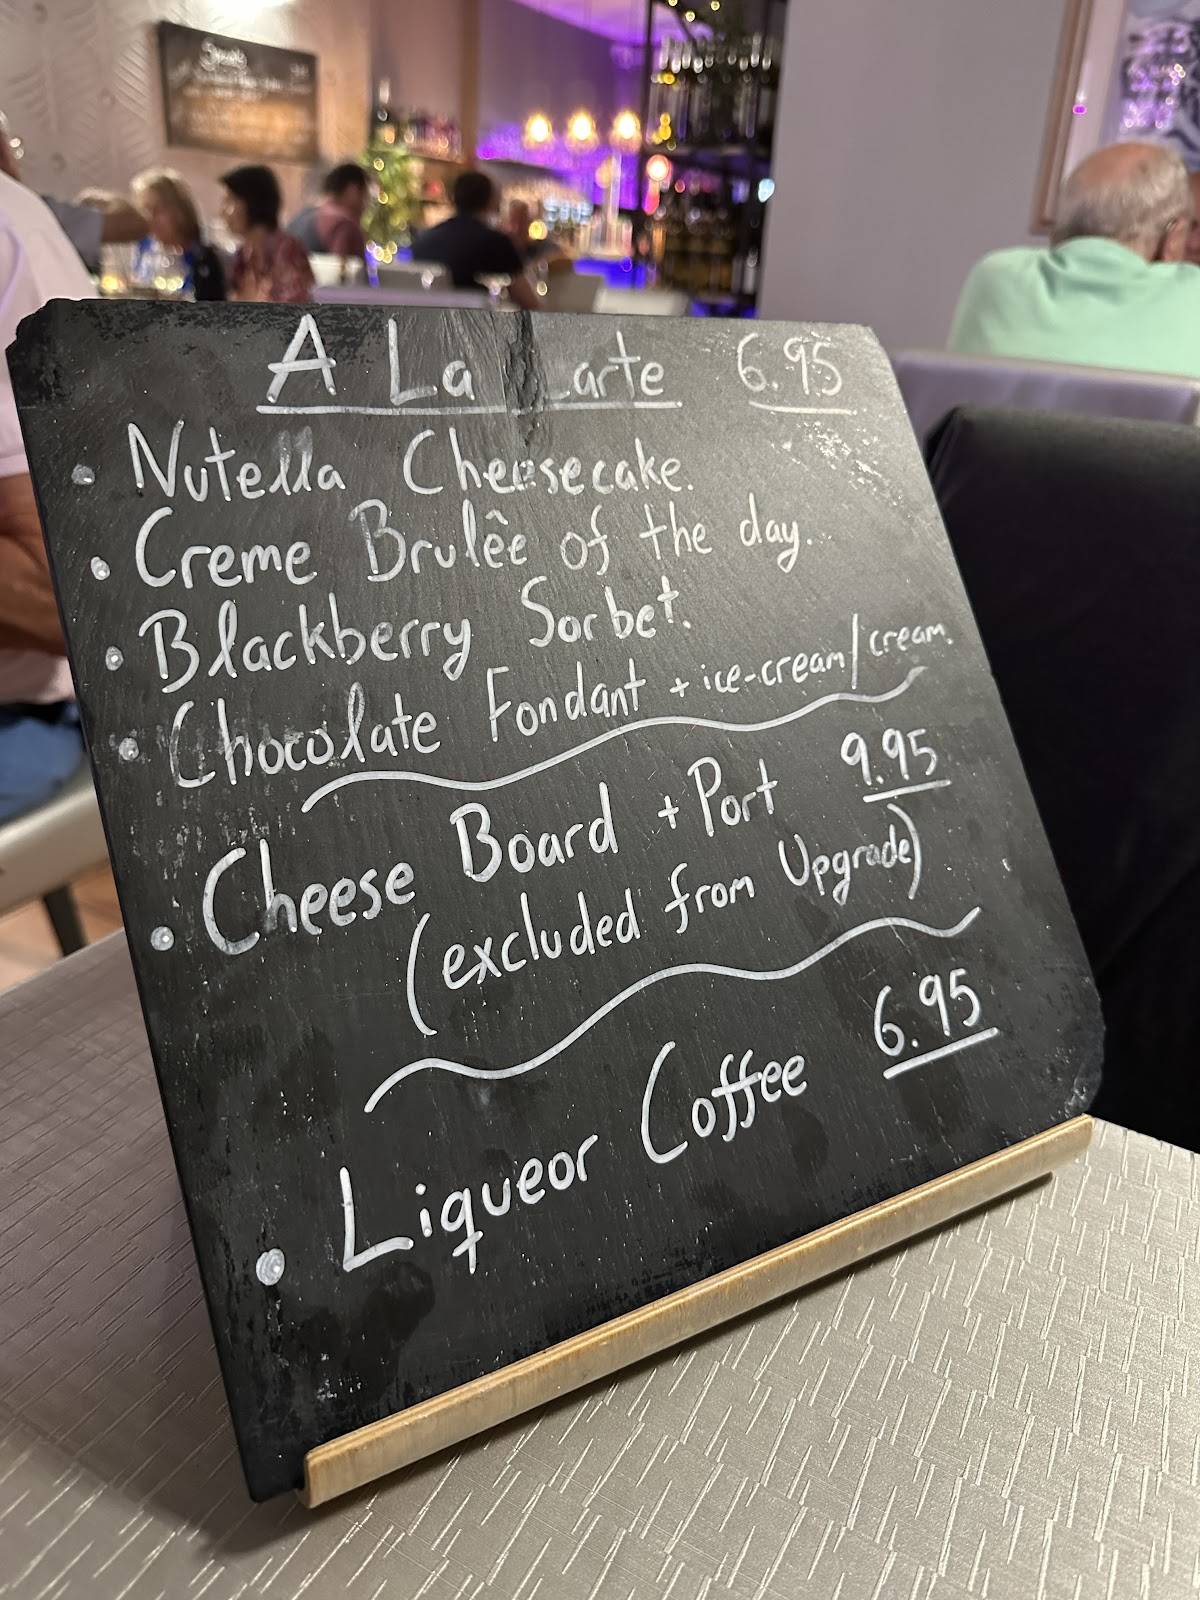 A La Carte 6.95
• Nutella Cheesecake.
• Creme Brulêe of the day.
• Blackberry Sorbet.
• Chocolate Fondant + ice-cream/cream.
• Cheese Board + Port 9.95
(excluded from Upgrade)
• Liqueor Coffee 6.95